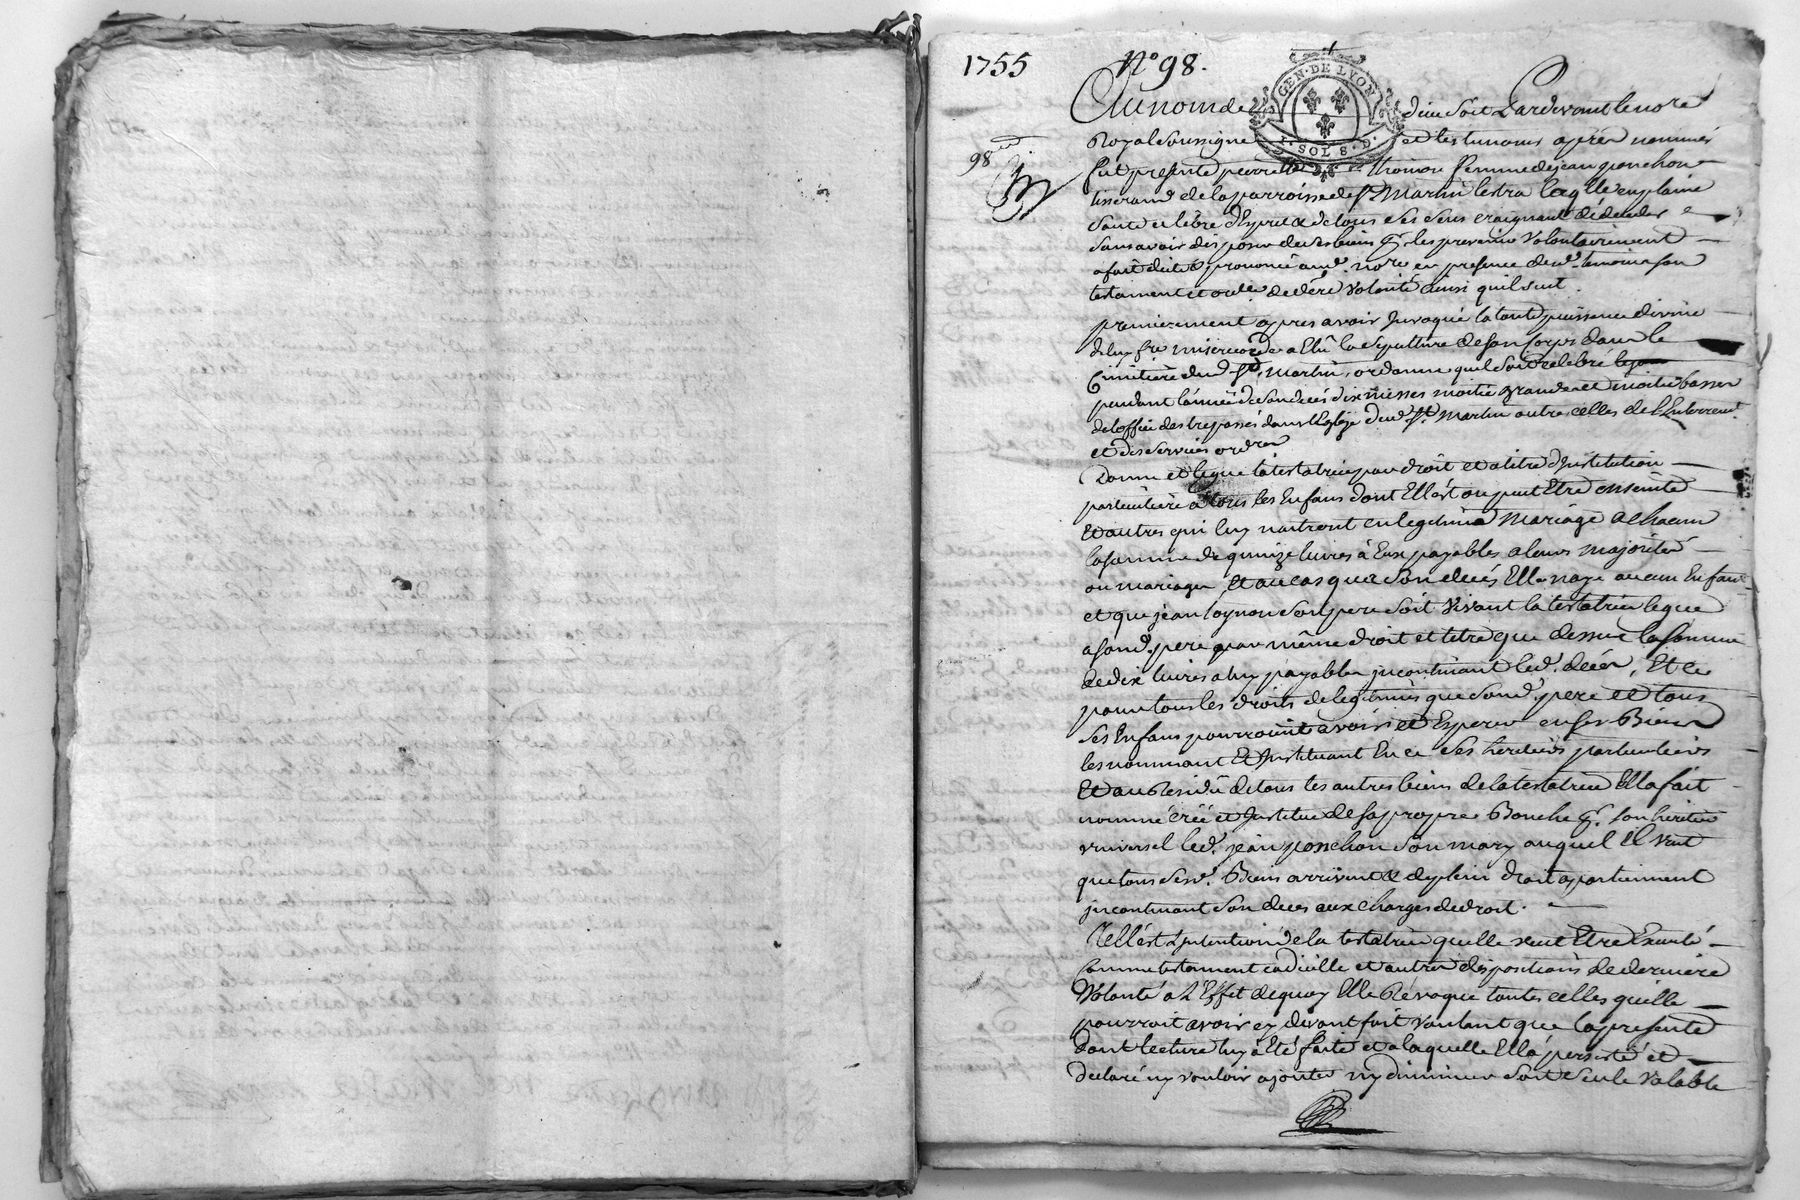 1755 N° 98.
GEN · DE LYON
1 · SOL 8 · D ·
Au nom de dieu soit Pardevant le nore
98
Royal soussigné et les temoins après nommés
fut presente pierrette Thoinon femme de jean ponchon
tisserand de la parroisse de St Martin lestra laqlle en plaine
santé et libre d'Esprit & de tous ses sens craignant de deceder
sans avoir disposer de ses biens & les prevenir volontairement
a fait dicté & prononcé aud. nore en presence desd. temoins son
testament et ordce de dere volonté ainsi quil suit.
premierement apres avoir Invoqué la toute puissance divine
de luy fre misericorde a Elû la sepulture de son corps dans le
Cimitiere dud St. Martin, ordonne quil soit célebré
pendant l'année de son decés dix messes moitié grandes et moitié basses
de l'office des trepassés dans l'Eglise dud. St. Martin outre celles de l'Enterremt
et des services ordres
Donne et legue la testatrice par droit et a titre d'Institution
particulière à tous les Enfans dont Ell'est ou peut Etre enseinte
Et autres qui luy naitront en legitime mariage a chacun
la somme de quinze livres à Eux payables a leurs majorités
ou mariages, Et au cas qua son decés Elle n'aye aucun Enfant
et que jean Thoynon son pere soit vivant la testatrice legue
a sond. pere par même droit et titre que dessus la somme
de dix livres a luy payables incontinant led. decés, Et ce
pour tous les droits de legitimes que sond. pere et tous
ses Enfans pourroint avoir et Esperer en ses Biens
les nommant Et Instituant En ce ses heritiers particuliers
Et au Residû de tous les autres biens de la testatrice Ella fait
nommé créé et Institué de sa propre Bouche & son héritier
universel led. jean ponchon son mary auquel El veut
que tous sesd. Biens arrivent & de plein droit apartiennent
incontinant son deces aux charges de droit.
Tell'est L'intention de la testatrice quelle veut Etre Exécuté
Comme testament codicille et autres dispositions de derniere
Volonté a L'Effet de quoy Elle Révoque toutes celles quelle
pourroit avoir cy devant fait voulant que la presente
dont lecture luy à Eté faite et a laquelle Ell'a persisté et
declaré ny vouloir ajouter ny diminuer soit seule valable